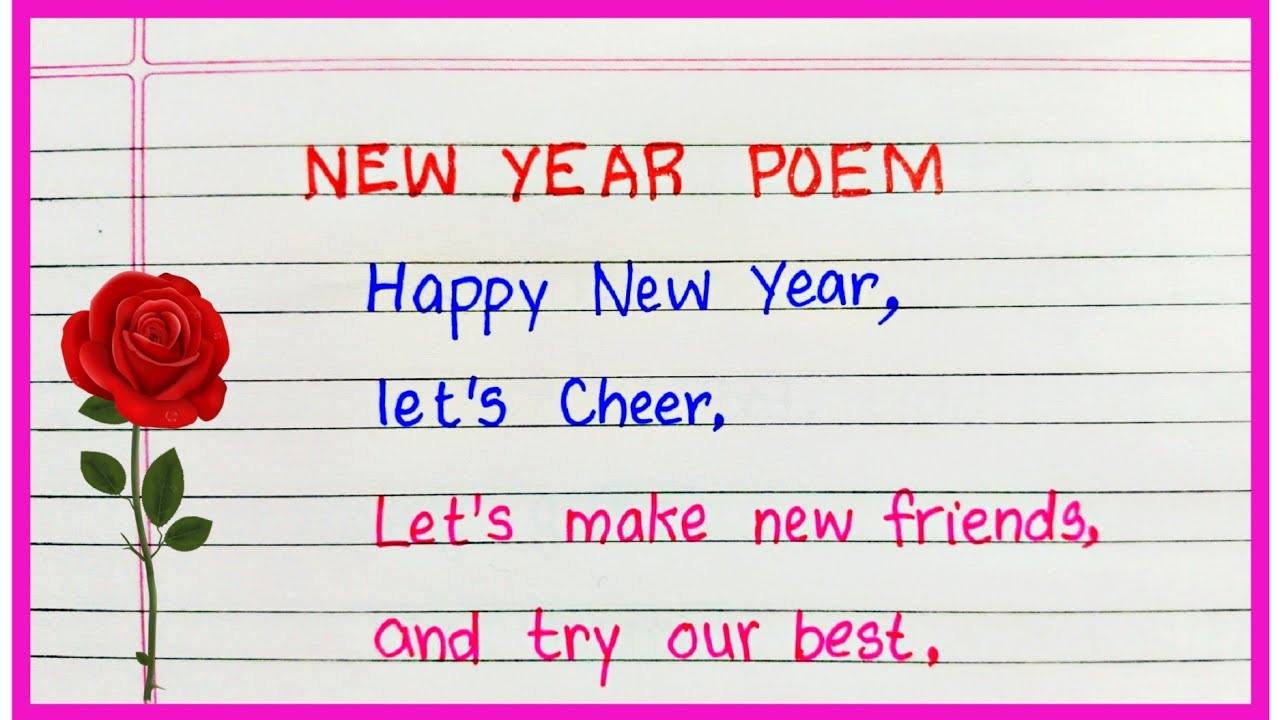 NEW YEAR POEM
Happy New Year,
let's Cheer,
Let's make new friends,
and try our best,